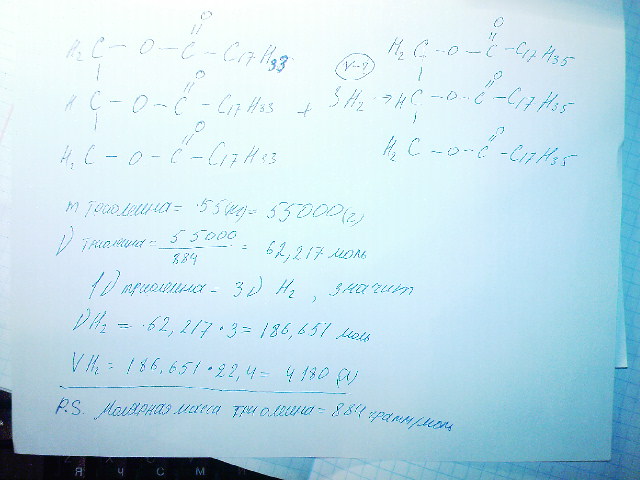 O O
H₂C - O - C - C₁₇H₃₃ V-? H₂C - O - C - C₁₇H₃₅
O O
HC - O - C - C₁₇H₃₃ + 3H₂ → HC - O - C - C₁₇H₃₅
O O
H₂C - O - C - C₁₇H₃₃ H₂C - O - C - C₁₇H₃₅
m триолеина = 55(кг) = 55000(г)
ν = 55000/884 = 62,217 моль
1ν триолеина = 3ν H₂, значит
νH₂ = 62,217 · 3 = 186,651 моль
VH₂ = 186,651 · 22,4 = 4180
P.S. Молярная масса триолеина = 884 грамм/моль
Я Ч С М